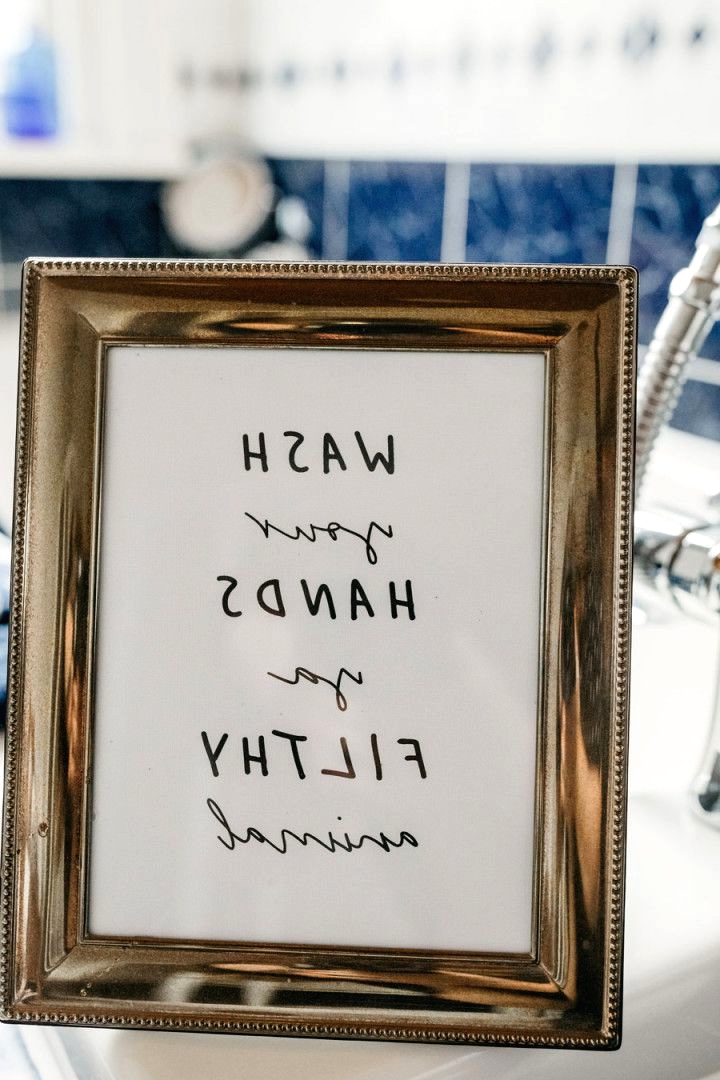 WASH
your
HANDS
ya
FILTHY
animal